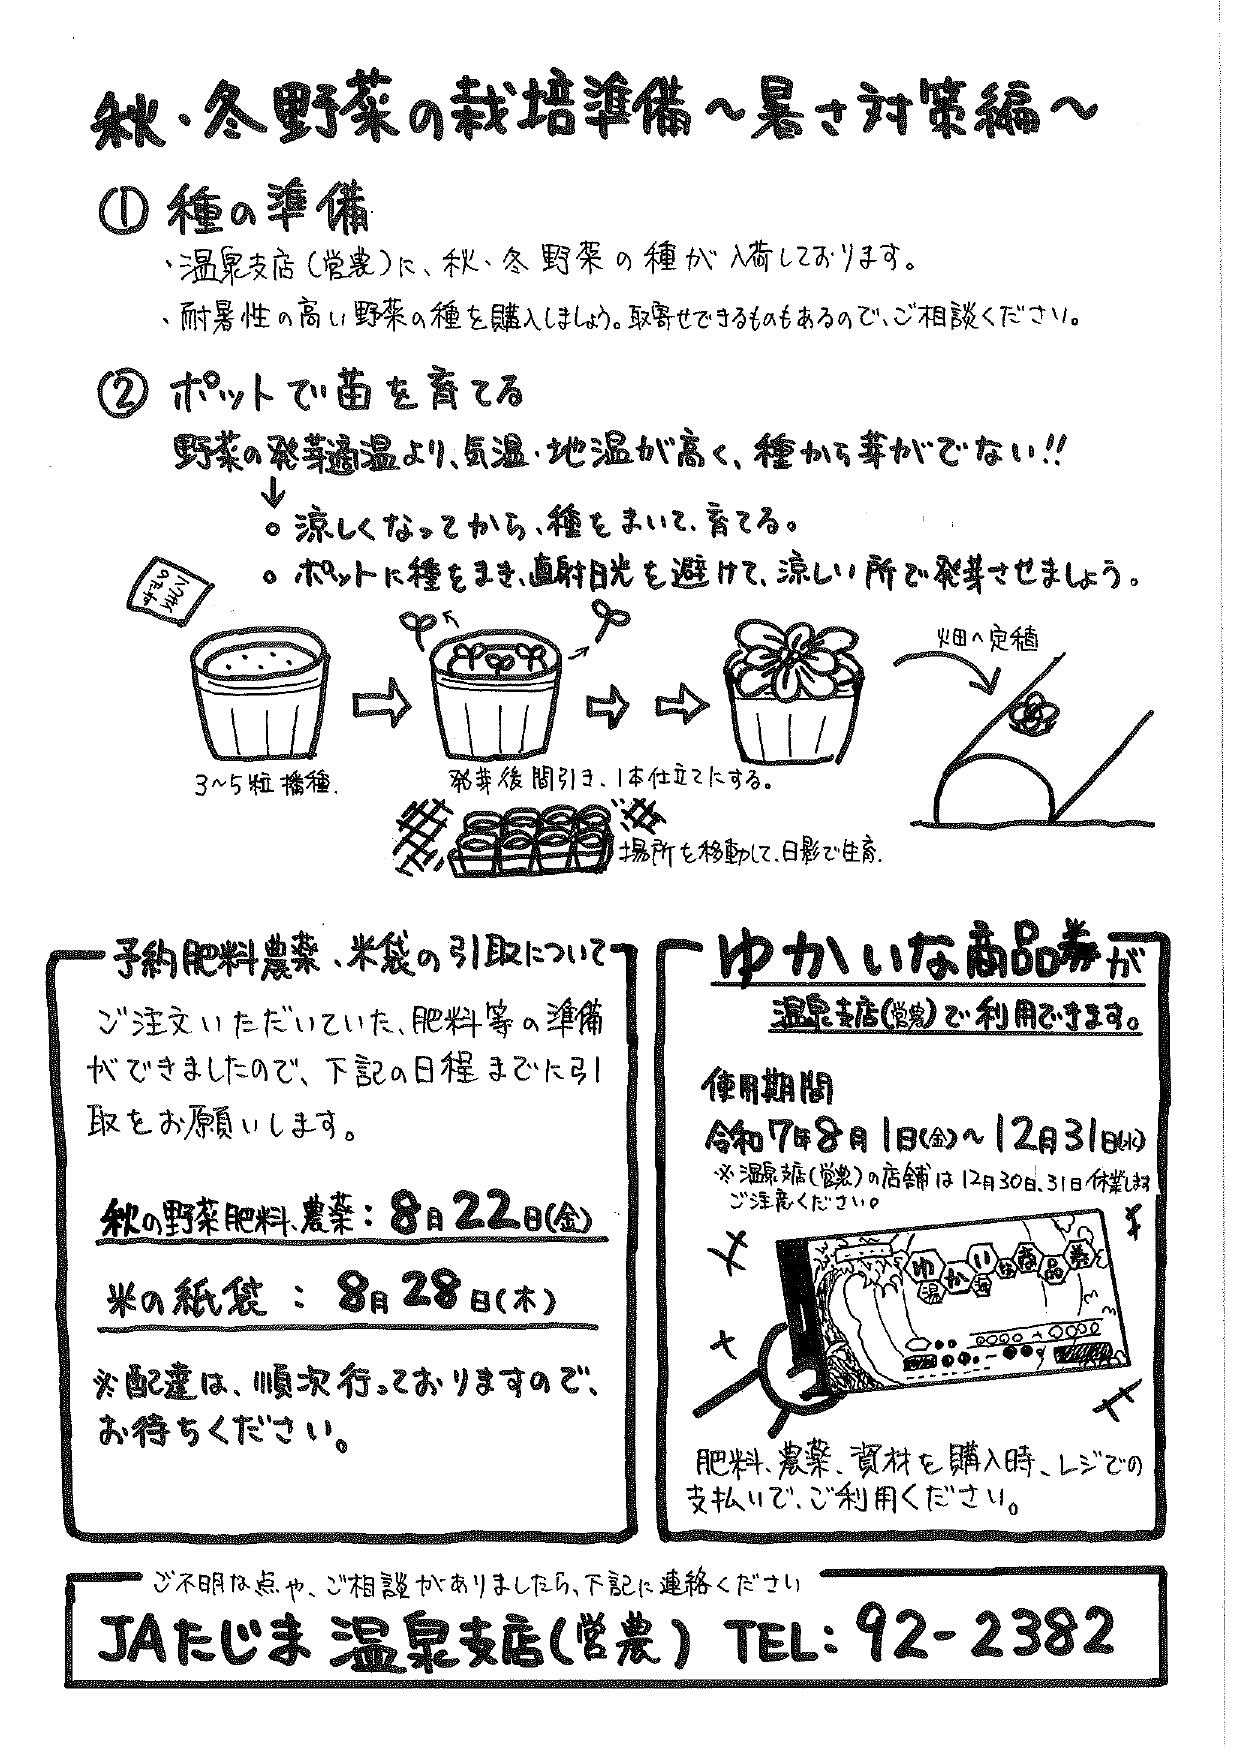 秋・冬野菜の栽培準備～暑さ対策編～
① 種の準備
・温泉支店(営農)に、秋・冬野菜の種が入荷しております。
・耐暑性の高い野菜の種を購入しましょう。取寄せできるものもあるので、ご相談ください。
② ポットで苗を育てる
野菜の発芽適温より、気温・地温が高く、種から芽がでない!!
↓
○ 涼しくなってから、種をまいて、育てる。
○ ポットに種をまき、直射日光を避けて、涼しい所で発芽させましょう。
畑へ定植
3～5粒播種.
発芽後間引き、1本仕立てにする。
場所を移動して、日影で生育.
予約肥料農薬、米袋の引取について
ご注文いただいていた、肥料等の準備
ができましたので、下記の日程までに引
取をお願いします。
秋の野菜肥料、農薬：8月22日(金)
米の紙袋：8月28日(木)
※配達は、順次行っておりますので、
お待ちください。
ゆかいな商品券が
温泉支店(営農)で利用できます。
使用期間
令和7年8月1日(金)～12月31日(水)
※温泉支店(営農)の店舗は12月30日、31日休業します
ご注意ください。
ゆかいな商品券
温泉
肥料、農薬、資材を購入時、レジでの
支払いで、ご利用ください。
ご不明な点や、ご相談がありましたら、下記に連絡ください
JAたじま 温泉支店(営農) TEL：92-2382